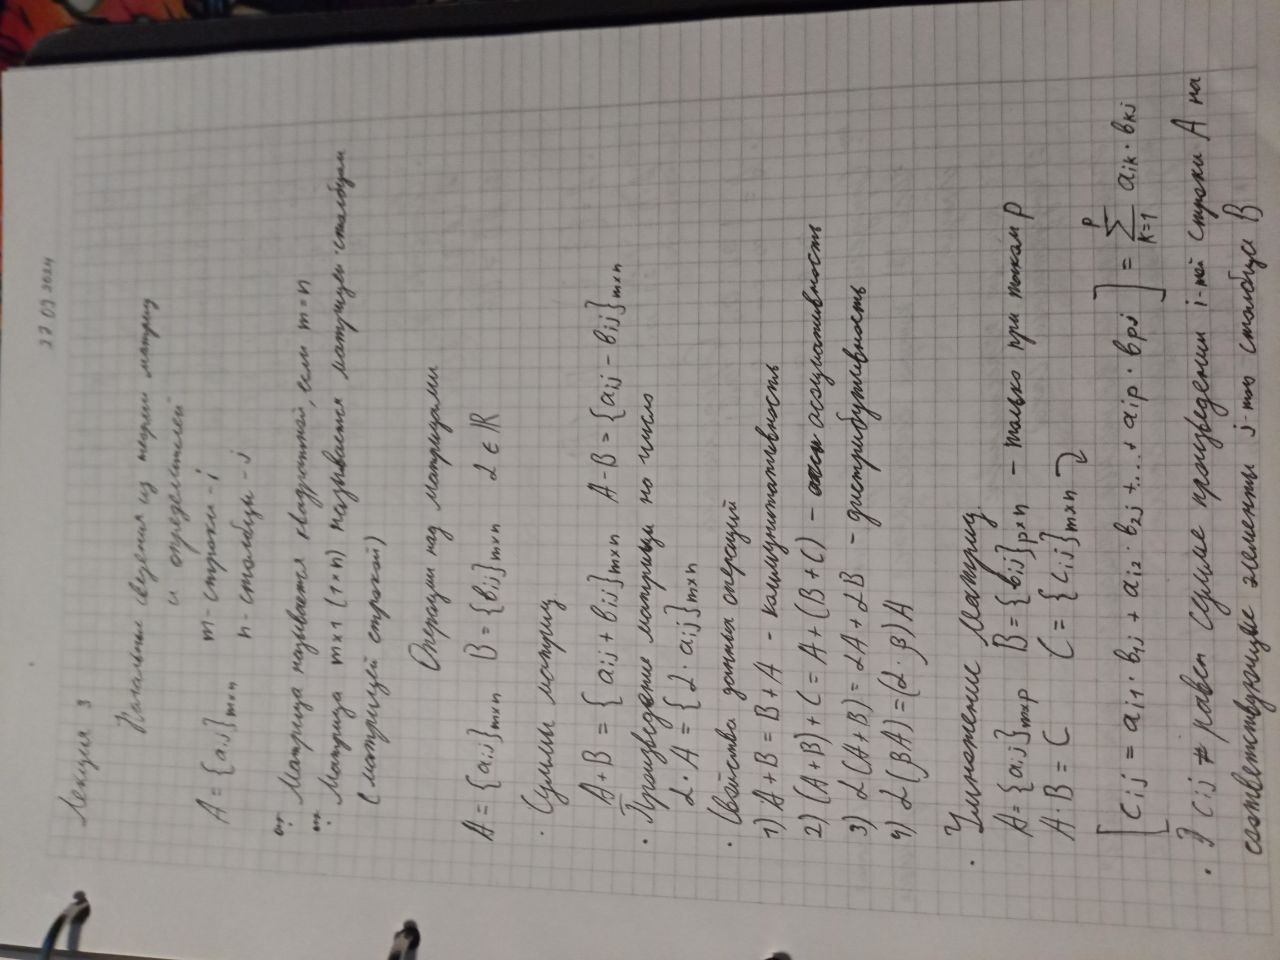 27 09 2024
Лекция 3
Начальные сведения из теории матриц
и определителей
A = {aij}m×n m - строки - i
n - столбцы - j
Матрица называется квадратной, если m = n
Матрица m×1 (1×n) называется матрицей столбцом
(матрицей строкой)
Операции над матрицами
A = {aij}m×n B = {bij}m×n α ∈ ℝ
· Сумма матриц
A+B = {aij + bij}m×n A-B = {aij - bij}m×n
· Произведение матрицы на число
α·A = {α·aij}m×n
· Свойства данных операций
1) A+B = B+A - коммунитативность
2) (A+B)+C = A+(B+C) - ассоциативность
3) α(A+B) = αA + αB - дистрибутивность
4) α(βA) = (α·β)A
· Умножение матриц
A = {aij}m×p B = {bij}p×n - только при таком p
A·B = C C = {cij}m×n
[cij = ai1·b1j + ai2·b2j + ... + aip·bpj] = ∑ p k=1 aik·bkj
· Э cij равен сумме произведении i-той строки A на
соответствующие элементы j-го столбца B